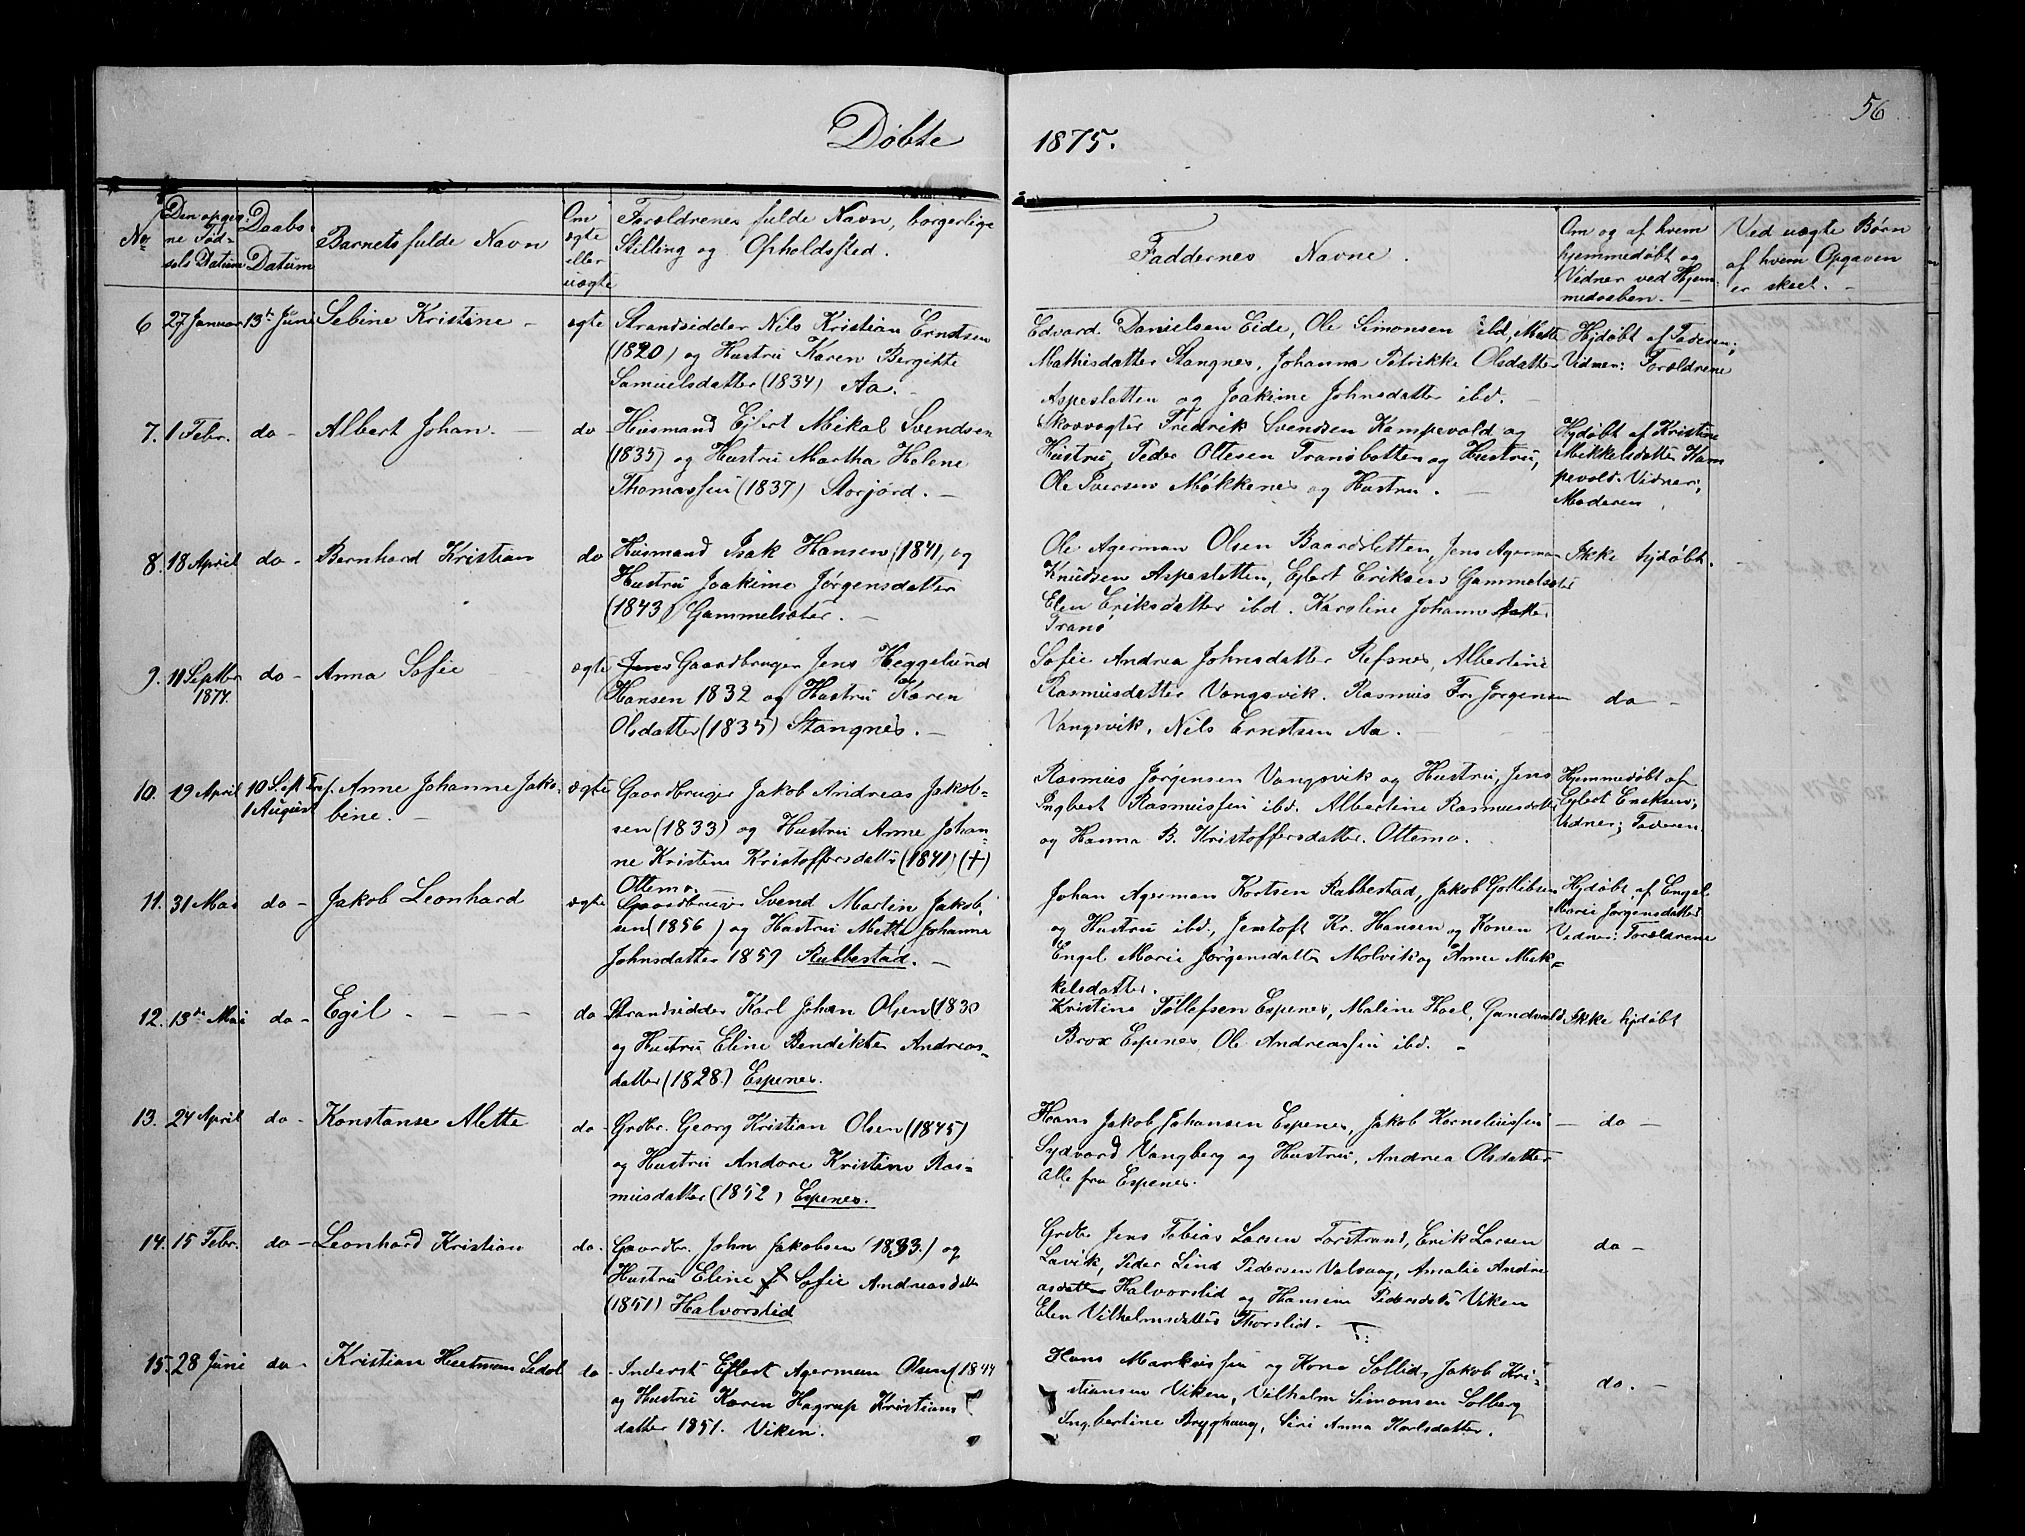 56
Døbte 1875.
No
Den opgivne Fødsels Datum
Daabs Datum
Barnets fulde Navn
Om ægte eller uægte
Forældrenes fulde Navn, borgerlige
Stilling og Opholdsfted.
Faddernes Navne.
Om og af hvem
hjemmedøbt og
Vidner ved Hjem-
medaaben. -
Ved uægte Børn
af hvem Opgaven
er skeet. -
6 27 Januar 13de Juni Sebine Kristine - ægte
Strandsidder Nils Kristian Erndtsen
(1820) og Hustru Karen Bergitte
Samuelsdatter (1834) Aa. -
Edvard Danielsen Eide, Ole Simonsen ibd, Mette
Mathisdatter Stangnes, Johanna Petrikke Olsdatter
Aspesletten og Joakime Johnsdatter ibd. -
Hjdøbt af Faderen;
Vidner: Forældrene
7. 1 Febr. do - Albert Johan. - do
Husmand Ejlert Mikal Svendsen
(1835) og Hustru Martha Helene
Thomassen (1837) Storjord. -
Skovvogter Fredrik Svendsen Kampevold og
Hustru, Peder Ottesen Tranøbotten og Hustru,
Ole Iversen Møkkenes og Hustru. -
Hjdøbt af Kristine
Mikkelsdatter Kam
pevold. Vidner;
Moderen
8. 18 April do - Bernhard Kristian do
Husmand Isak Hansen (1841, og
Hustru Joakime Jørgensdatter
(1843) Gammelsæter. -
Ole Agerman Olsen Baardsletten, Jens Agerman
Knudsen Aspesletten, Ejlert Eriksen Gammelsæter
Elen Eriksdatter ibd. Karoline Johannesdatter
Tranø
Ikke hjdøbt. -
9. 11 Septber 1874. do - Anna Sofie - ægte
Jens Gaardbruger Jens Heggelund
Hansen 1832 og Hustru Karen
Olsdatter (1835) Stangnes. -
Sofie Andrea Johnsdatter Refsnes, Albertine
Rasmusdatter Vangsvik. Rasmus Fr. Jørgensen
Vangsvik, Nils Erndtsen Aa. -
do -
10. 19 April 10 Sept 1 August Anne Johanne Jako-
bine. - ægte
Gaardbruger Jakob Andreas Jakob-
sen (1833) og Hustru Anne Johan-
ne Kristine Kristoffersdatter (1841) (+)
Ottemo.
Rasmus Jørgensen Vangsvik og Hustru, Jens
Ingbert Rasmussen ibd. Albertine Rasmusdatter
og Hanna B. Kristoffersdatter. Ottemo.
Hjemmedøbt af
Ejlert Eriksen;
Vidner; Faderen
11. 31 Mai do - Jakob Leonhard ægte
Gaardbruger Svend Martin Jakob-
sen (1856) og Hustru Mette Johanna
Johnsdatter 1859 Rubbestad. -
Johan Agerman Kortsen Rabbestad, Jakob Gotlibsen
og Hustru ibd., Jentoft Kr. Hansen og Konen
Engel Marie Jørgensdatter Molvik og Anne Mik-
kelsdatter.
Hjdøbt, af Engel
Marie Jørgensdatter
Vidner; Forældrene
12. 13de Mai do - Egil - - - do -
Strandsidder Karl Johan Olsen (1830
og Hustru Eline Bendikte Andreas-
datter (1828.) Espenes.
Kristine Tollefsen Espenes, Maline Hoel, Gundvald
Brox Espenes, Ole Andreassen ibd. -
Ikke hjdøbt
13. 24 April do - Konstanse Alette do -
Grdbr. Georg Kristian Olsen (1845)
og Hustru Andore Kristine Ras-
musdatter (1852) Espenes.
Hans Jakob Johansen Espenes, Jakob Korneliussen
Sydvard Vangberg og Hustru, Andrea Olsdatter
Alle fra Espenes.
- do -
14. 15 Febr. do - Leonhard Kristian do.
Gaardbr. John Jakobsen (1833.) og
Hustru Eline Sofie Andreasdatt
(1851) Halvorslid
Grdbr Jens Tobias Larsen Forstrand, Erik Larsen
Lavik, Peder Lind Pedersen Valvaag, Amalie Andre
asdatter Halvorslid og Hansine Pedersdatt Viken
Elen Vilhelmsdatter Thorslid. -
do -
15. 28 Juni do - Kristian Heetman Sedol do
Inderst Ejlert Agerman Olsen (1844
og Hustru Karen Hagrup Kristians
datter 1851. Viken.
Hans Markussen og Kone Sollid, Jakob Kri-
stiansen Viken, Vilhelm Simonsen Solberg
Ingbertine Brygghaug, Siri Anna Karlsdatter.
do. -